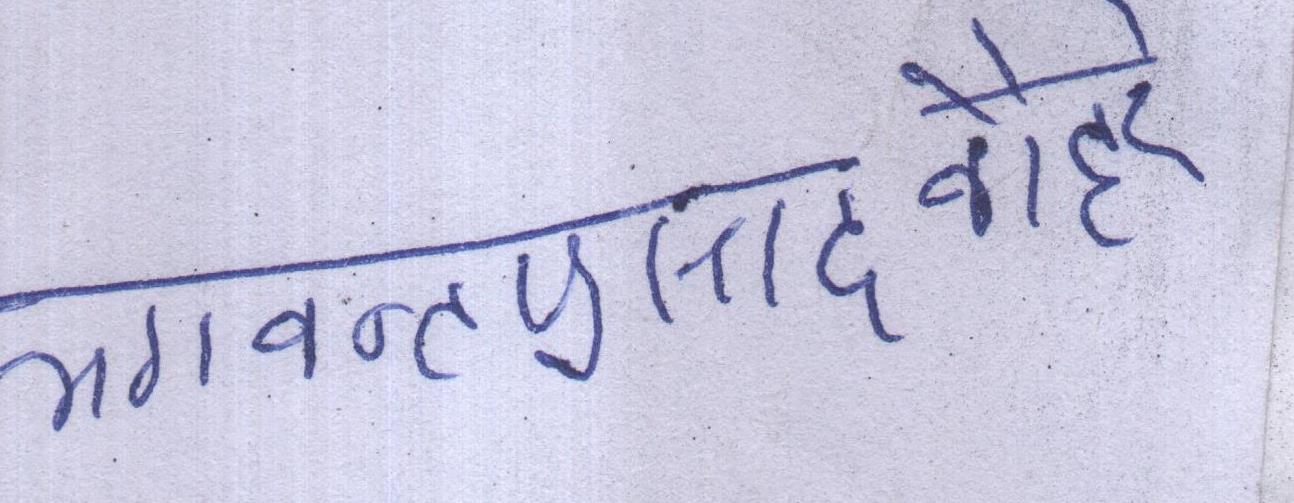 भगवन्तप्रसाद बौहरे